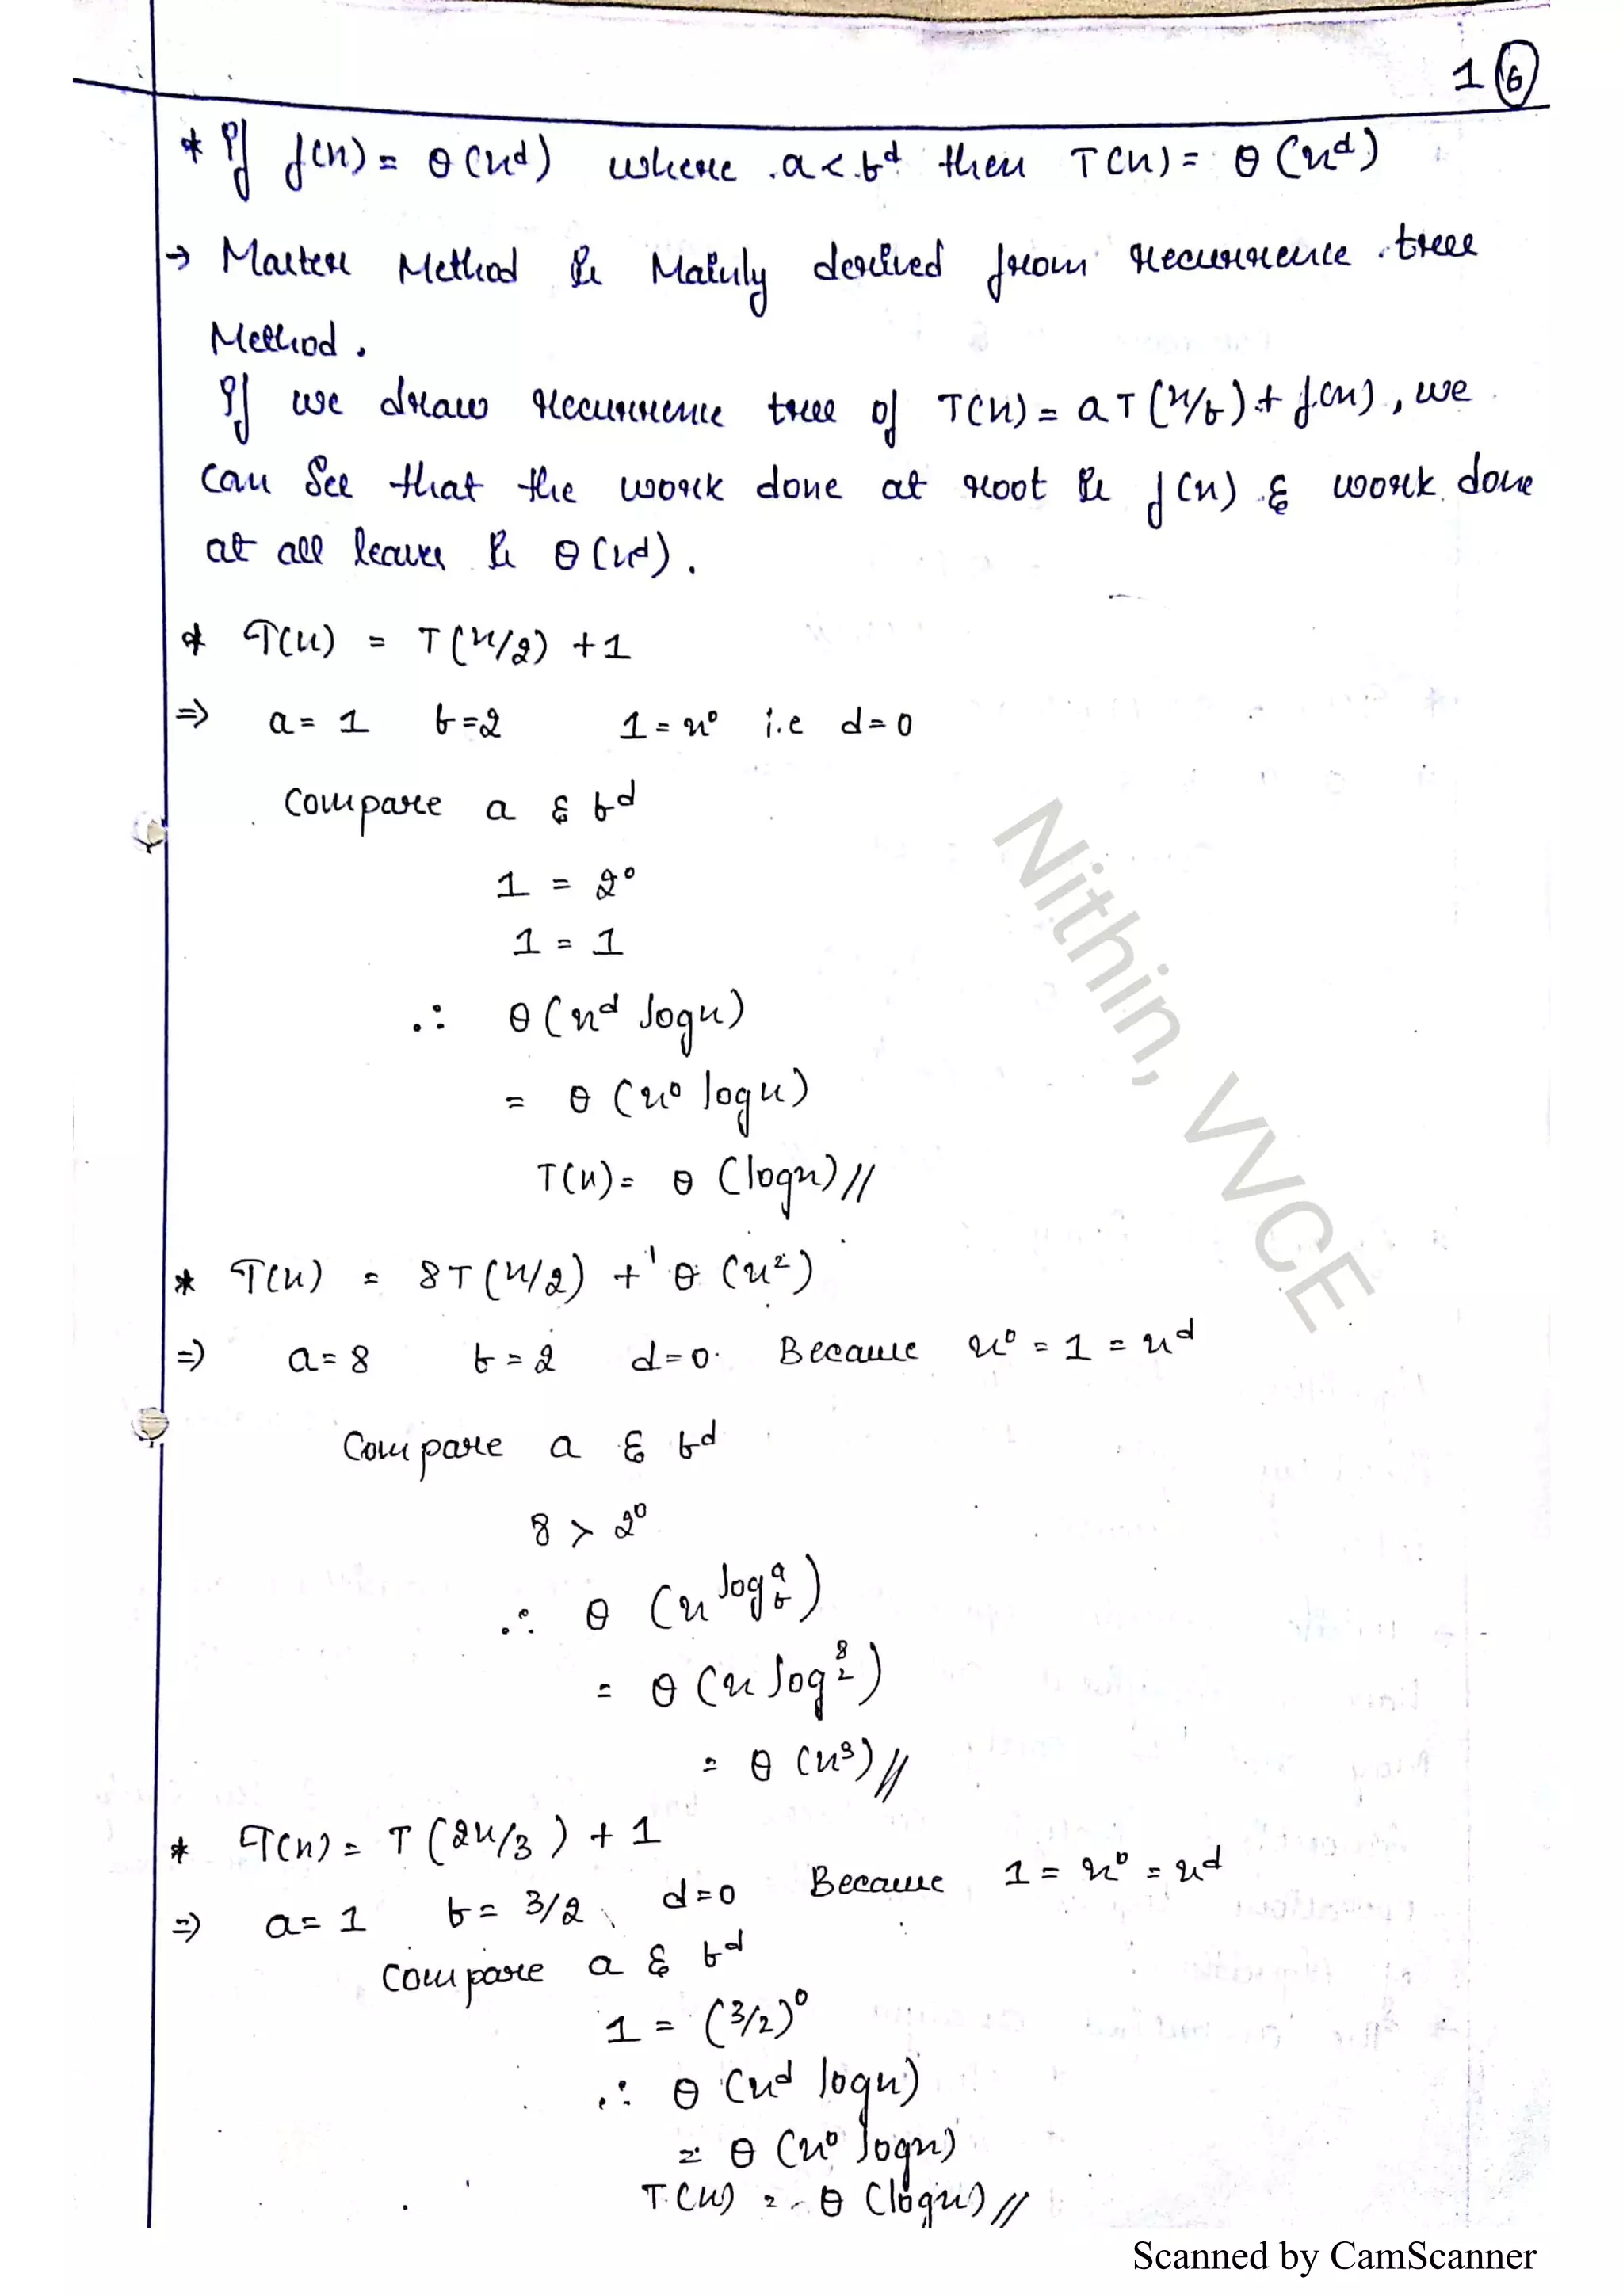 1 6
* If f(n) = θ(n^d) where a < b^d then T(n) = θ(n^d)
→ Master Method is Mainly derived from recurrence tree
Method.
If we draw recurrence tree of T(n) = aT(n/b) + f(n), we
can see that the work done at root is f(n) & work done
at all leaves is θ(n^d).
* T(n) = T(n/2) + 1
⇒ a = 1 b = 2 1 = n^0 i.e d = 0
Compare a & b^d
1 = 2^0
1 = 1
∴ θ(n^d logn)
= θ(n^0 logn)
T(n) = θ(logn)//
* T(n) = 8T(n/2) + θ(n^2)
⇒ a = 8 b = 2 d = 0 Because n^0 = 1 = n^d
Compare a & b^d
8 > 2^0
∴ θ(n^log_b^a)
= θ(n log_2^8)
= θ(n^3)//
* T(n) = T(2n/3) + 1
⇒ a = 1 b = 3/2, d = 0 Because 1 = n^0 = n^d
Compare a & b^d
1 = (3/2)^0
∴ θ(n^d logn)
= θ(n^0 logn)
T(n) = θ(logn)//
Nithin, VVCE
Scanned by CamScanner